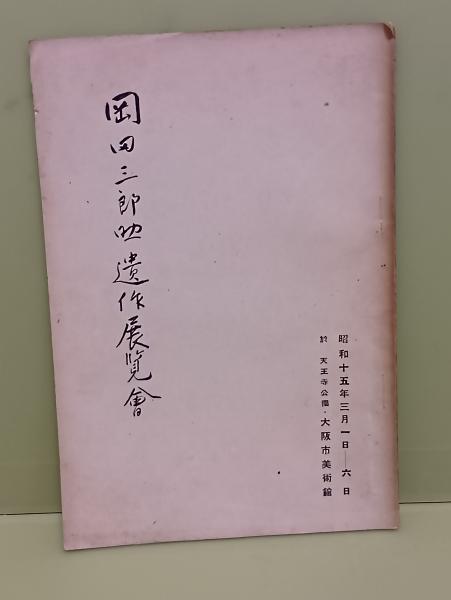 昭和十五年三月一日—六日
於 天王寺公園・大阪市美術館
岡田三郎助遺作展覧會